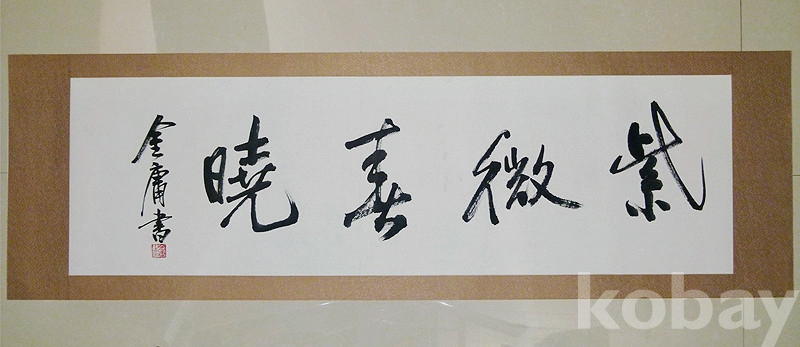 紫微春曉
金庸書
kobay